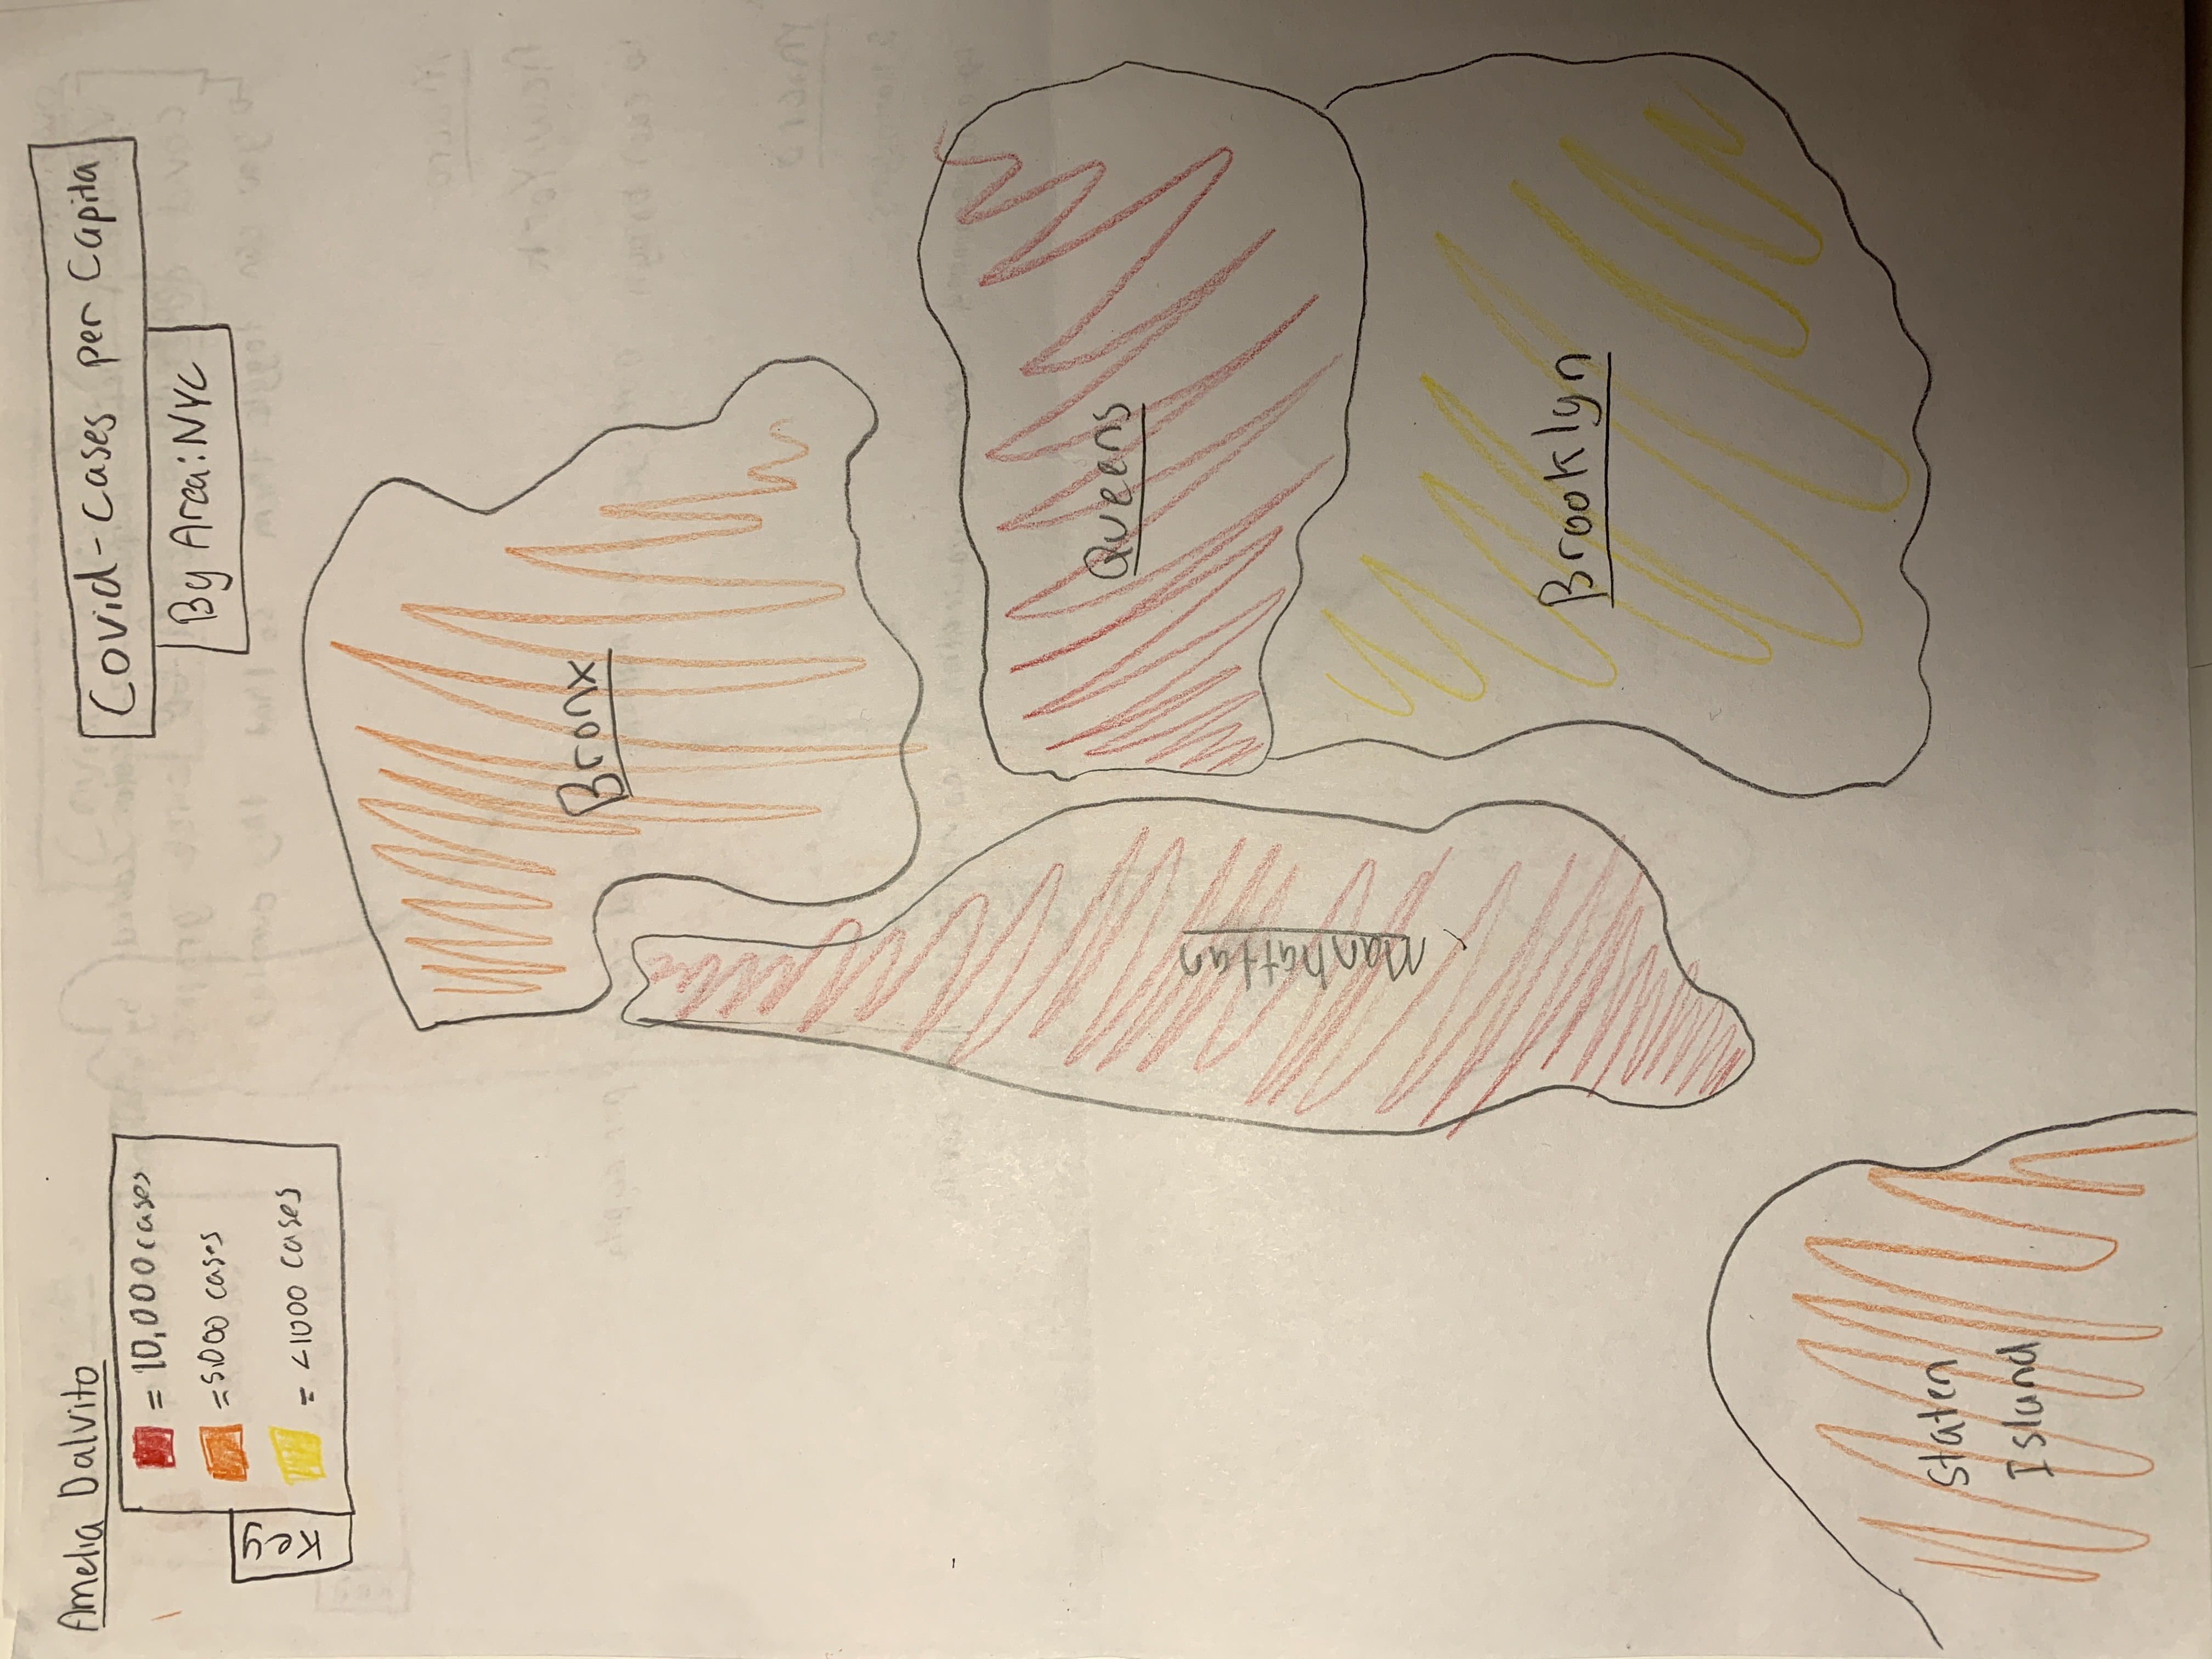 Amelia Dalvito
Covid-cases per Capita
By Area: NYC
Key
= 10,000 cases
= 5,000 cases
= <1000 cases
Bronx
Queens
Manhattan
Brooklyn
Staten
Island